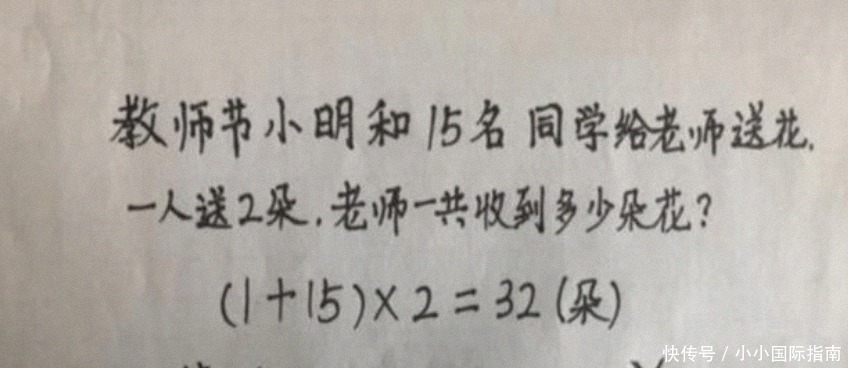 教师节小明和15名同学给老师送花.
一人送2朵.老师一共收到多少朵花?
(1+15)×2=32(朵)
快传号/小小国际指南